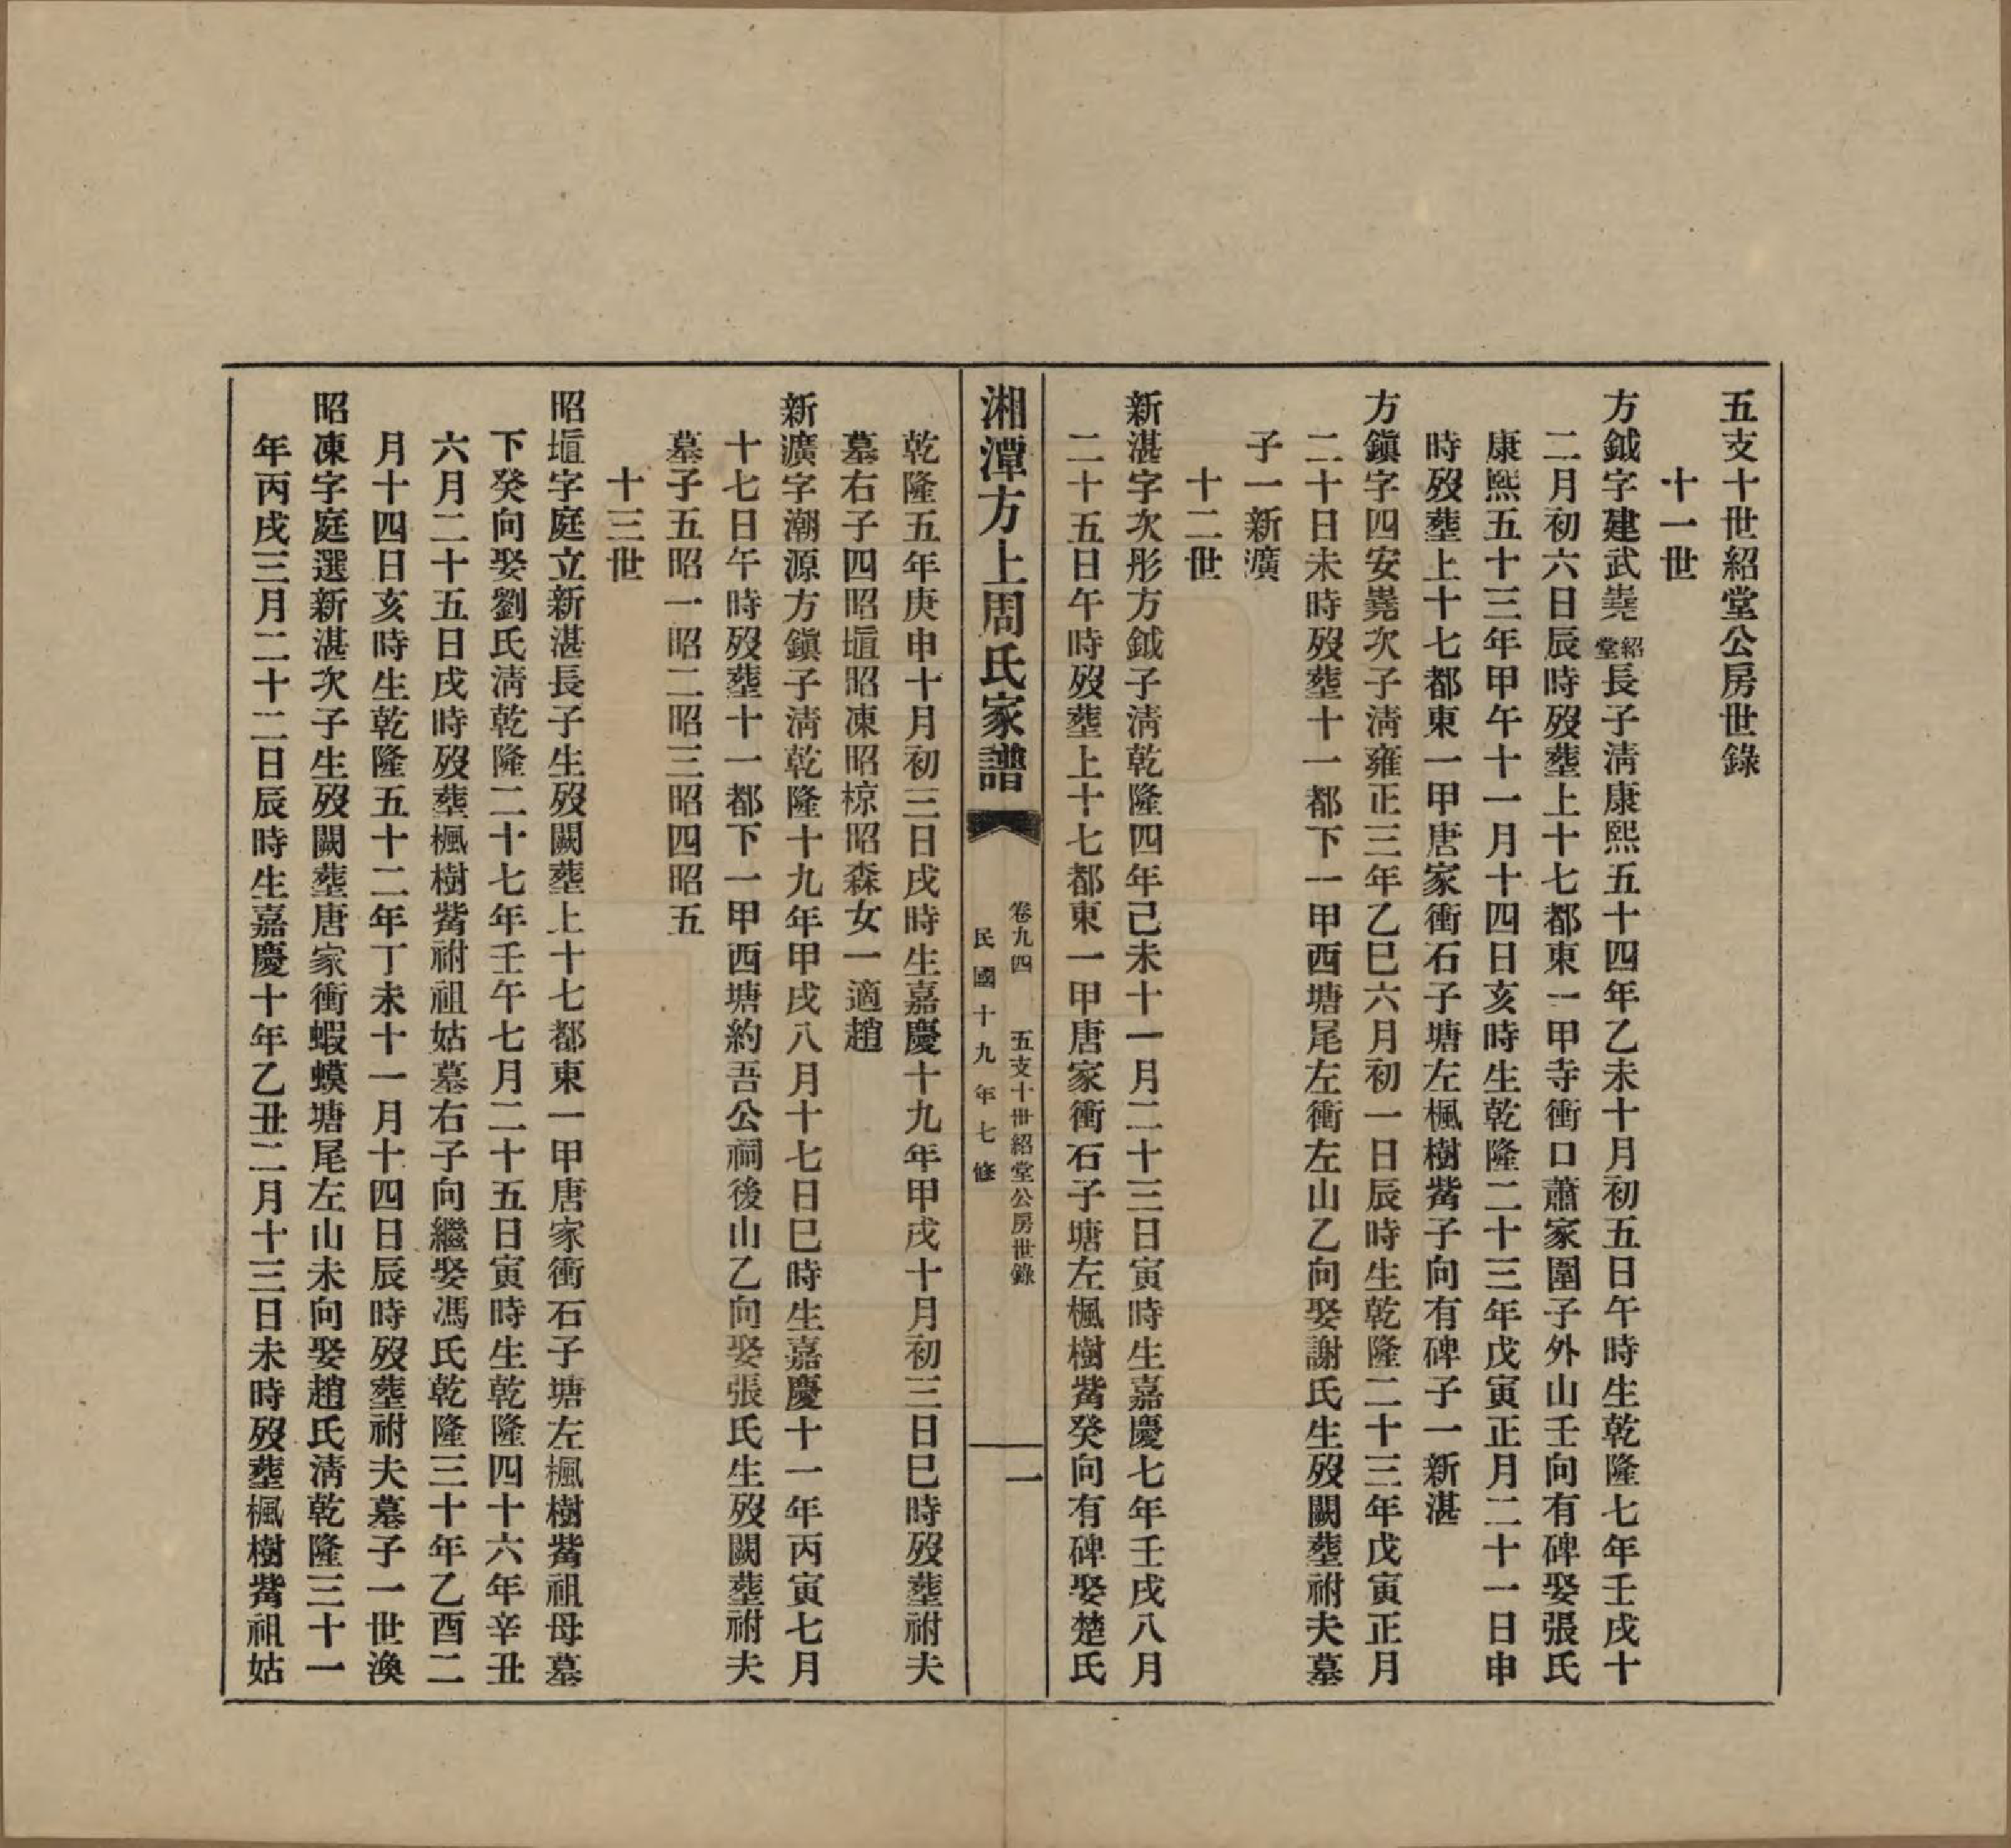 五支十世紹堂公房世錄
十一世
方鉞字建武堯紹堂長子淸康熙五十四年乙未十月初五日午時生乾隆七年壬戌十
二月初六日辰時歿塟上十七都東一甲寺衝口蕭家園子外山壬向有碑娶張氏
康熙五十三年甲午十一月十四日亥時生乾隆二十三年戊寅正月二十一日申
時歿塟上十七都東一甲唐家衝石子塘左楓樹觜子向有碑子一新湛
方鎭字四安堯次子淸雍正三年乙巳六月初一日辰時生乾隆二十三年戊寅正月
二十日未時歿塟十一都下一甲西塘尾左衝左山乙向娶謝氏生歿闕塟祔夫墓
子一新濱
十二世
新湛字次彤方鉞子淸乾隆四年己未十一月二十三日寅時生嘉慶七年壬戌八月
二十五日午時歿塟上十七都東一甲唐家衝石子塘左楓樹觜癸向有碑娶楚氏
湘潭方上周氏家譜
卷九四 五支十世紹堂公房世錄
民國十九年七修
一
乾隆五年庚申十月初三日戌時生嘉慶十九年甲戌十月初三日巳時歿塟祔夫
墓右子四昭壇昭凍昭椋昭森女一適趙
新濱字潮源方鎭子淸乾隆十九年甲戌八月十七日巳時生嘉慶十一年丙寅七月
十七日午時歿塟十一都下一甲西塘約吾公祠後山乙向娶張氏生歿闕塟祔夫
墓子五昭一昭二昭三昭四昭五
十三世
昭壇字庭立新湛長子生歿闕塟上十七都東一甲唐家衝石子塘左楓樹觜祖母墓
下癸向娶劉氏淸乾隆二十七年壬午七月二十五日寅時生乾隆四十六年辛丑
六月二十五日戌時歿塟楓樹觜祔祖姑墓右子向繼娶馮氏乾隆三十年乙酉二
月十四日亥時生乾隆五十二年丁未十一月十四日辰時歿塟祔夫墓子一世渙
昭凍字庭選新湛次子生歿闕塟唐家衝蝦蟆塘尾左山未向娶趙氏淸乾隆三十一
年丙戌三月二十二日辰時生嘉慶十年乙丑二月十三日未時歿塟楓樹觜祖姑